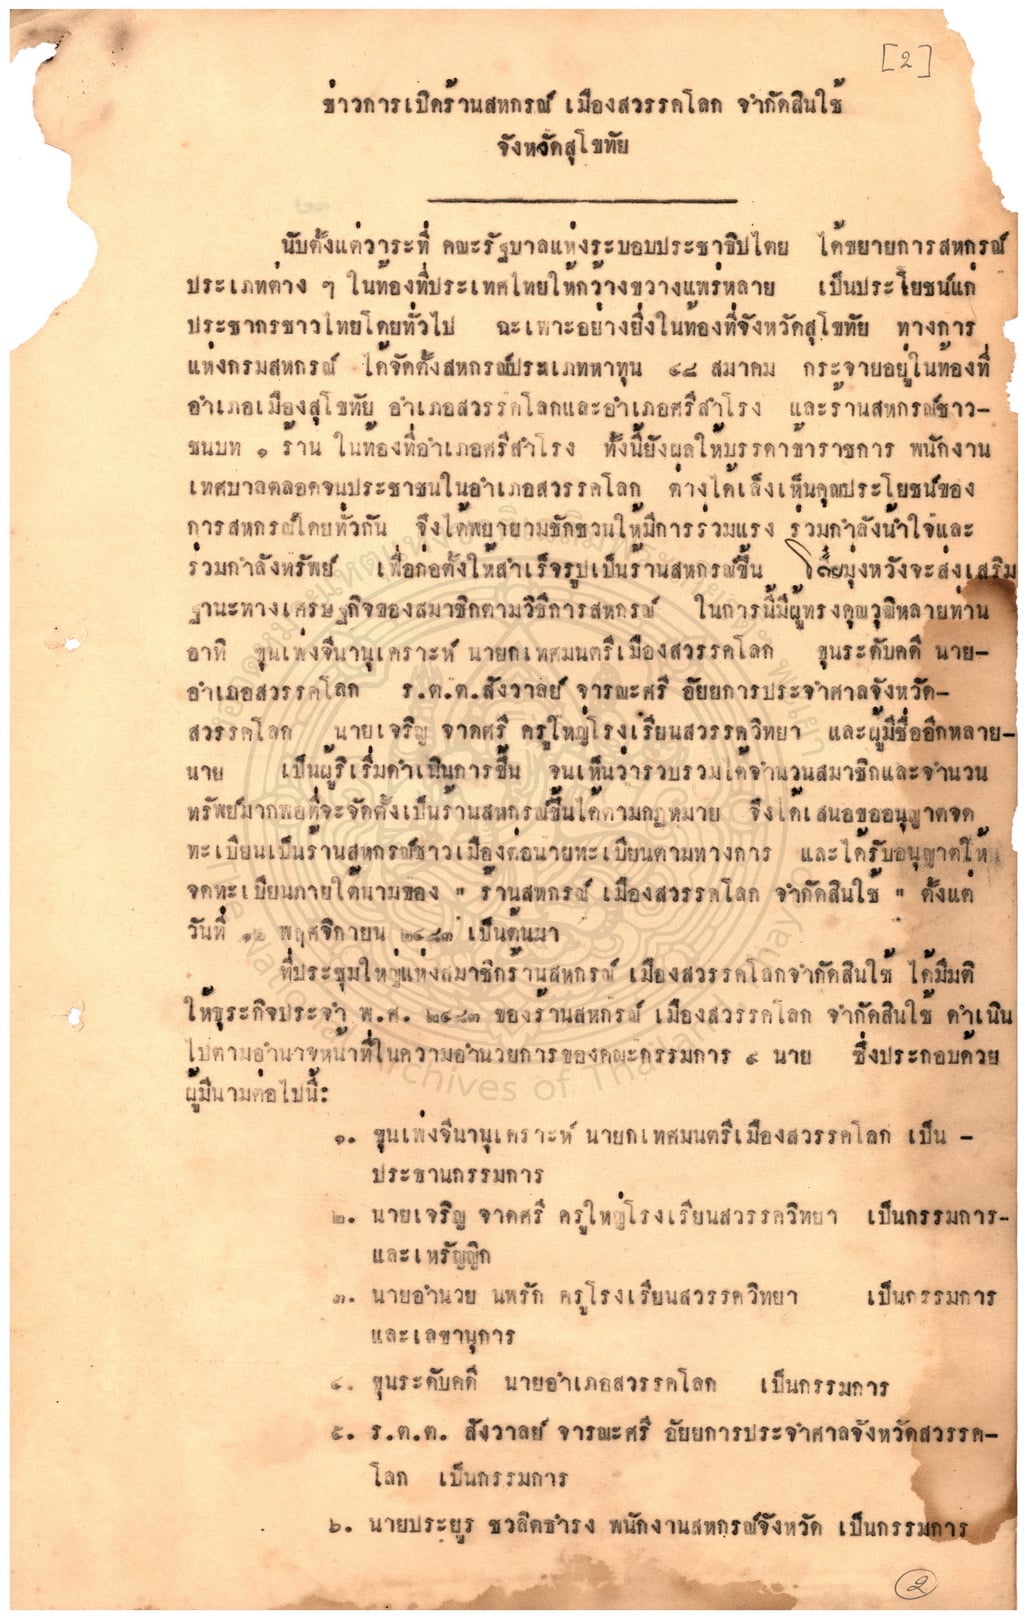 [2]
ข่าวการเปิดร้านสหกรณ์ เมืองสวรรคโลก จำกัดสินใช้
จังหวัดสุโขทัย
นับตั้งแต่วาระที่ คณะรัฐบาลแห่งระบอบประชาธิปไตย ได้ขยายการสหกรณ์
ประเภทต่าง ๆ ในท้องที่ประเทศไทยให้กว้างขวางแพร่หลาย เป็นประโยชน์แก่
ประชากรชาวไทยโดยทั่วไป ฉะเพาะอย่างยิ่งในท้องที่จังหวัดสุโขทัย ทางการ
แห่งกรมสหกรณ์ ได้จัดตั้งสหกรณ์ประเภทหาทุน ๔๘ สมาคม กระจายอยู่ในท้องที่
อำเภอเมืองสุโขทัย อำเภอสวรรคโลกและอำเภอศรีสำโรง และร้านสหกรณ์ชาว-
ชนบท ๑ ร้าน ในท้องที่อำเภอศรีสำโรง ทั้งนี้ยังผลให้บรรดาข้าราชการ พนักงาน
เทศบาลตลอดจนประชาชนในอำเภอสวรรคโลก ต่างได้เล็งเห็นคุณประโยชน์ของ
การสหกรณ์โดยทั่วกัน จึงได้พยายามชักชวนให้มีการร่วมแรง ร่วมกำลังน้ำใจและ
ร่วมกำลังทรัพย์ เพื่อก่อตั้งให้สำเร็จรูปเป็นร้านสหกรณ์ขึ้น โดยมุ่งหวังจะส่งเสริม
ฐานะทางเศรษฐกิจของสมาชิกตามวิธีการสหกรณ์ ในการนี้มีผู้ทรงคุณวุฒิหลายท่าน
อาทิ ขุนเพ่งจีนานุเคราะห์ นายกเทศมนตรีเมืองสวรรคโลก ขุนระดับคดี นาย-
อำเภอสวรรคโลก ร.ต.ต.สังวาลย์ จารณะศรี อัยยการประจำศาลจังหวัด-
สวรรคโลก นายเจริญ จาดศรี ครูใหญ่โรงเรียนสวรรควิทยา และผู้มีชื่ออีกหลาย-
นาย เป็นผู้ริเริ่มดำเนินการขึ้น จนเห็นว่ารวบรวมได้จำนวนสมาชิกและจำนวน
ทรัพย์มากพอที่จะจัดตั้งเป็นร้านสหกรณ์ขึ้นได้ตามกฎหมาย จึงได้เสนอขออนุญาตจด
ทะเบียนเป็นร้านสหกรณ์ชาวเมืองต่อนายทะเบียนตามทางการ และได้รับอนุญาตให้
จดทะเบียนภายใต้นามของ " ร้านสหกรณ์ เมืองสวรรคโลก จำกัดสินใช้ " ตั้งแต่
วันที่ ๑๒ พฤศจิกายน ๒๔๘๓ เป็นต้นมา
ที่ประชุมใหญ่แห่งสมาชิกร้านสหกรณ์ เมืองสวรรคโลกจำกัดสินใช้ ได้มีมติ
ให้ธุระกิจประจำ พ.ศ. ๒๔๘๓ ของร้านสหกรณ์ เมืองสวรรคโลก จำกัดสินใช้ ดำเนิน
ไปตามอำนาจหน้าที่ในความอำนวยการของคณะกรรมการ ๙ นาย ซึ่งประกอบด้วย
ผู้มีนามต่อไปนี้:
๑. ขุนเพ่งจีนานุเคราะห์ นายกเทศมนตรีเมืองสวรรคโลก เป็น -
ประธานกรรมการ
๒. นายเจริญ จาดศรี ครูใหญ่โรงเรียนสวรรควิทยา เป็นกรรมการ-
และเหรัญญิก
๓. นายอำนวย นพรัก ครูโรงเรียนสวรรควิทยา เป็นกรรมการ
และเลขานุการ
๔. ขุนระดับคดี นายอำเภอสวรรคโลก เป็นกรรมการ
๕. ร.ต.ต. สังวาลย์ จารณะศรี อัยยการประจำศาลจังหวัดสวรรค-
โลก เป็นกรรมการ
๖. นายประยูร ชวลิตธำรง พนักงานสหกรณ์จังหวัด เป็นกรรมการ
2